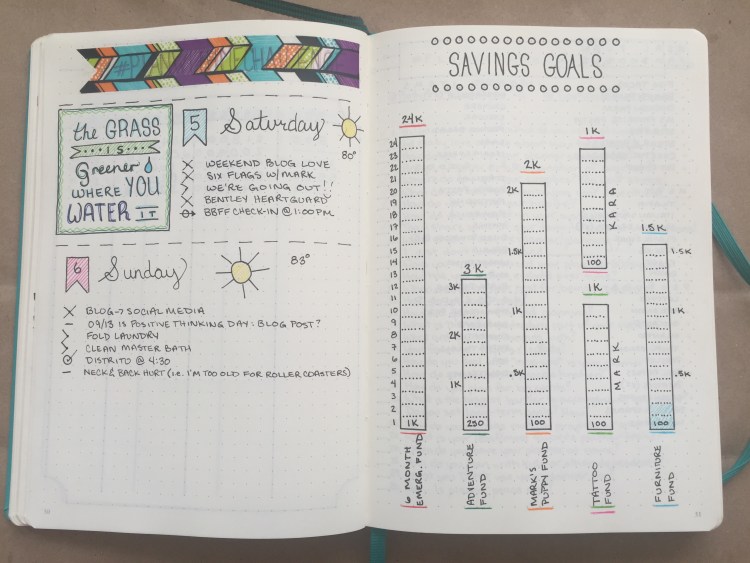 the GRASS
IS
Greener
WHERE YOU
WATER IT
5 Saturday
80°
WEEKEND BLOG LOVE
SIX FLAGS W/ MARK
WE'RE GOING OUT!!
BENTLEY HEARTGUARD
BBFF CHECK-IN @ 1:00PM
6 Sunday 83°
BLOG → SOCIAL MEDIA
09/13 IS POSITIVE THINKING DAY: BLOG POST?
FOLD LAUNDRY
CLEAN MASTER BATH
DISTRITO @ 4:30
NECK & BACK HURT (i.e. I'M TOO OLD FOR ROLLER COASTERS)
SAVINGS GOALS
24K
24
23
22
21
20
19
18
17
16
15
14
13
12
11
10
9
8
7
6
5
4
3
2
1
1K
6 MONTH
EMERG. FUND
3K
3K
2K
1K
250
ADVENTURE
FUND
2K
2K
1.5K
1K
.5K
100
MARK'S
PUPPY FUND
1K
KARA
100
1K
MARK
100
TATTOO
FUND
1.5K
1.5K
1K
.5K
100
FURNITURE
FUND